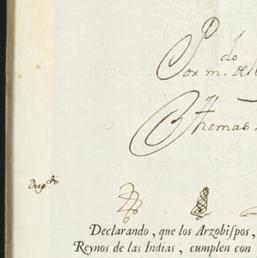 P.do
Por m. de
Thomas
Dup.do
Declarando, que los Arzobispos,
Reynos de las Indias, cumplen con